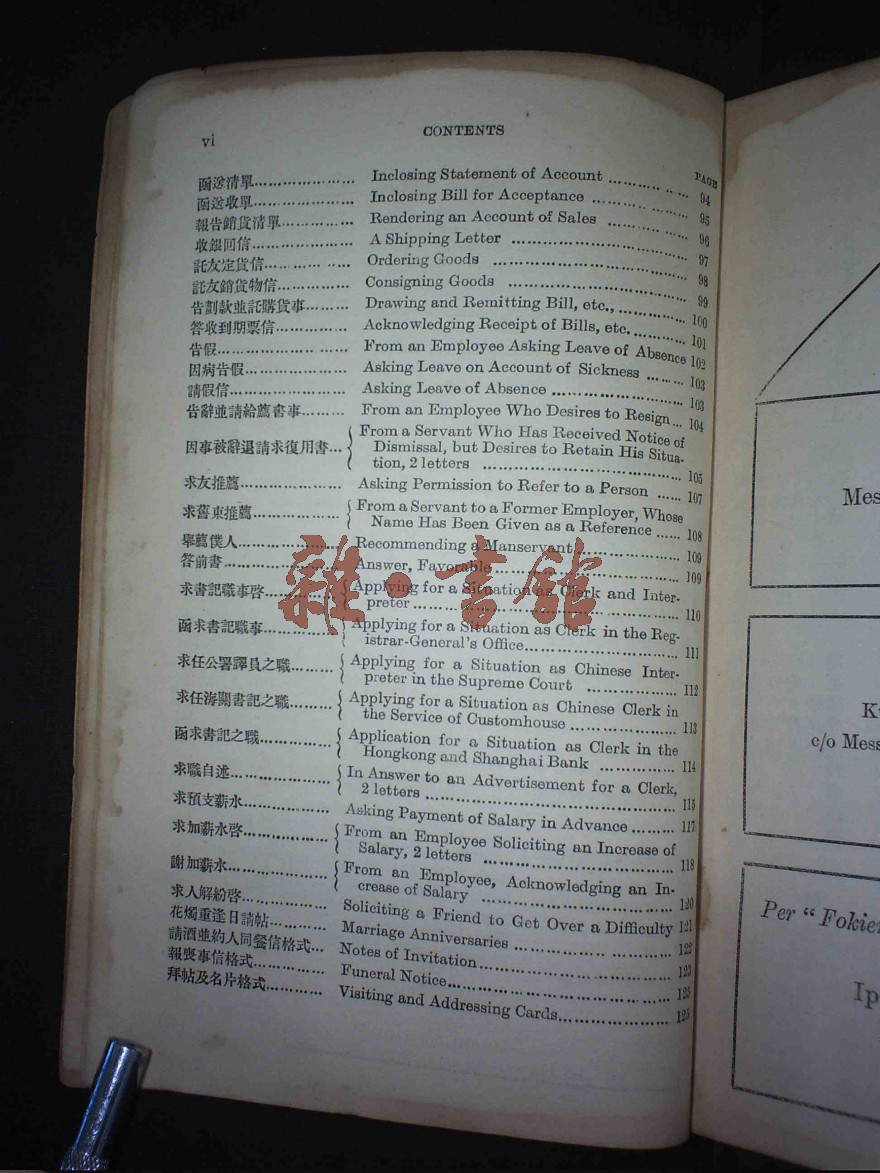 vi
CONTENTS
PAGE
函送清單 ..................... Inclosing Statement of Account ................ 94
函送收單 ..................... Inclosing Bill for Acceptance ................ 95
報告銷貨清單 ............... Rendering an Account of Sales ................ 96
收銀回信 ..................... A Shipping Letter ................ 97
託友定貨信 ..................... Ordering Goods ................ 98
託友銷貨物信 ............... Consigning Goods ................ 99
告劃款並託購貨事 ......... Drawing and Remitting Bill, etc., ................ 100
答收到期票信 ............... Acknowledging Receipt of Bills, etc. ............ 101
告假 ........................... From an Employee Asking Leave of Absence 102
因病告假 ..................... Asking Leave on Account of Sickness ......... 103
請假信 ........................ Asking Leave of Absence ................ 103
告辭並請給薦書事 ......... From an Employee Who Desires to Resign ... 104
因事被辭退請求復用書 ... From a Servant Who Has Received Notice of
Dismissal, but Desires to Retain His Situa-
tion, 2 letters ................ 105
求友推薦 ..................... Asking Permission to Refer to a Person ...... 107
求舊東推薦 .................. From a Servant to a Former Employer, Whose
Name Has Been Given as a Reference ...... 108
舉薦僕人 ..................... Recommending a Manservant ................ 109
答前書 ........................ Answer, Favorable ................ 109
求書記職事啓 ............... Applying for a Situation as Clerk and Inter-
preter ................ 110
函求書記職事 ............... Applying for a Situation as Clerk in the Reg-
istrar-General's Office ................ 111
求任公署譯員之職 ......... Applying for a Situation as Chinese Inter-
preter in the Supreme Court ................ 112
求任海關書記之職 ......... Applying for a Situation as Chinese Clerk in
the Service of Customhouse ................ 113
函求書記之職 ............... Application for a Situation as Clerk in the
Hongkong and Shanghai Bank ................ 114
求職自述 ..................... In Answer to an Advertisement for a Clerk,
2 letters ................ 115
求預支薪水 .................. Asking Payment of Salary in Advance ......... 117
求加薪水啓 .................. From an Employee Soliciting an Increase of
Salary, 2 letters ................ 118
謝加薪水 ..................... From an Employee, Acknowledging an In-
crease of Salary ................ 120
求人解紛啓 .................. Soliciting a Friend to Get Over a Difficulty 121
花燭重逢日請帖 ............ Marriage Anniversaries ................ 122
請酒並約人同餐信格式 ... Notes of Invitation ................ 123
報喪事信格式 ............... Funeral Notice ................ 125
拜帖及名片格式 ............ Visiting and Addressing Cards ................ 125
雜·書館
Mes
c/o Mess
Per "Fokie
Ip